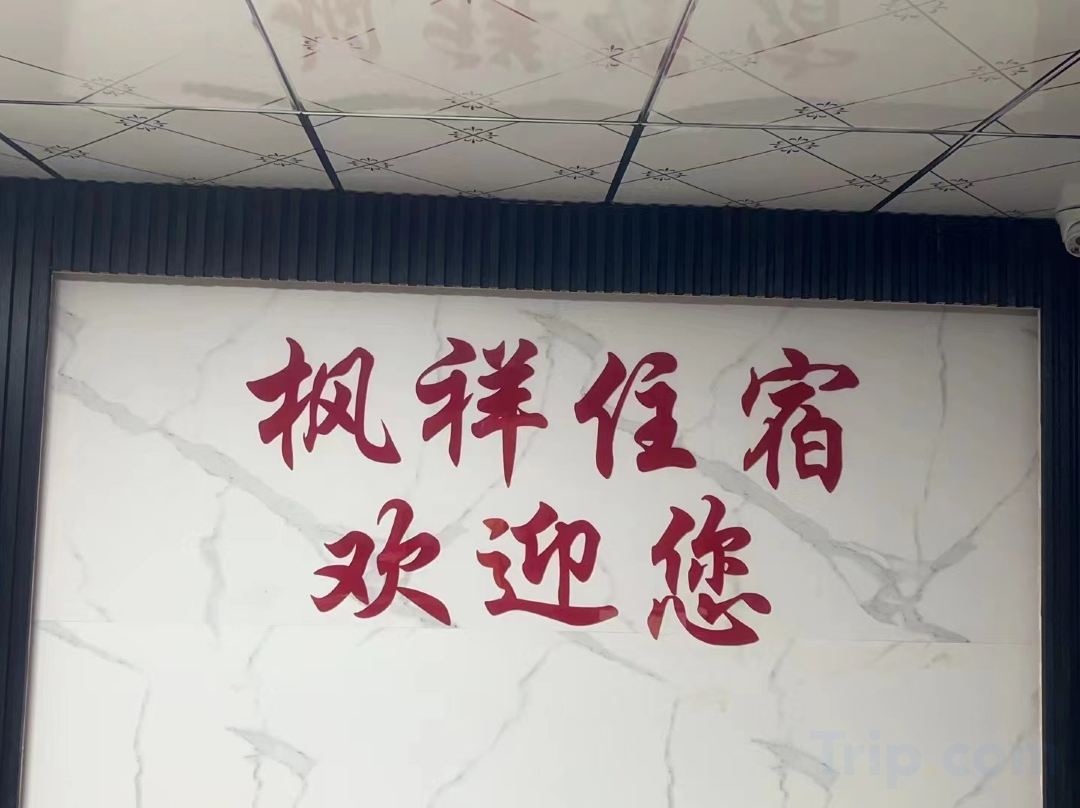 枫祥住宿
欢迎您
Trip.com